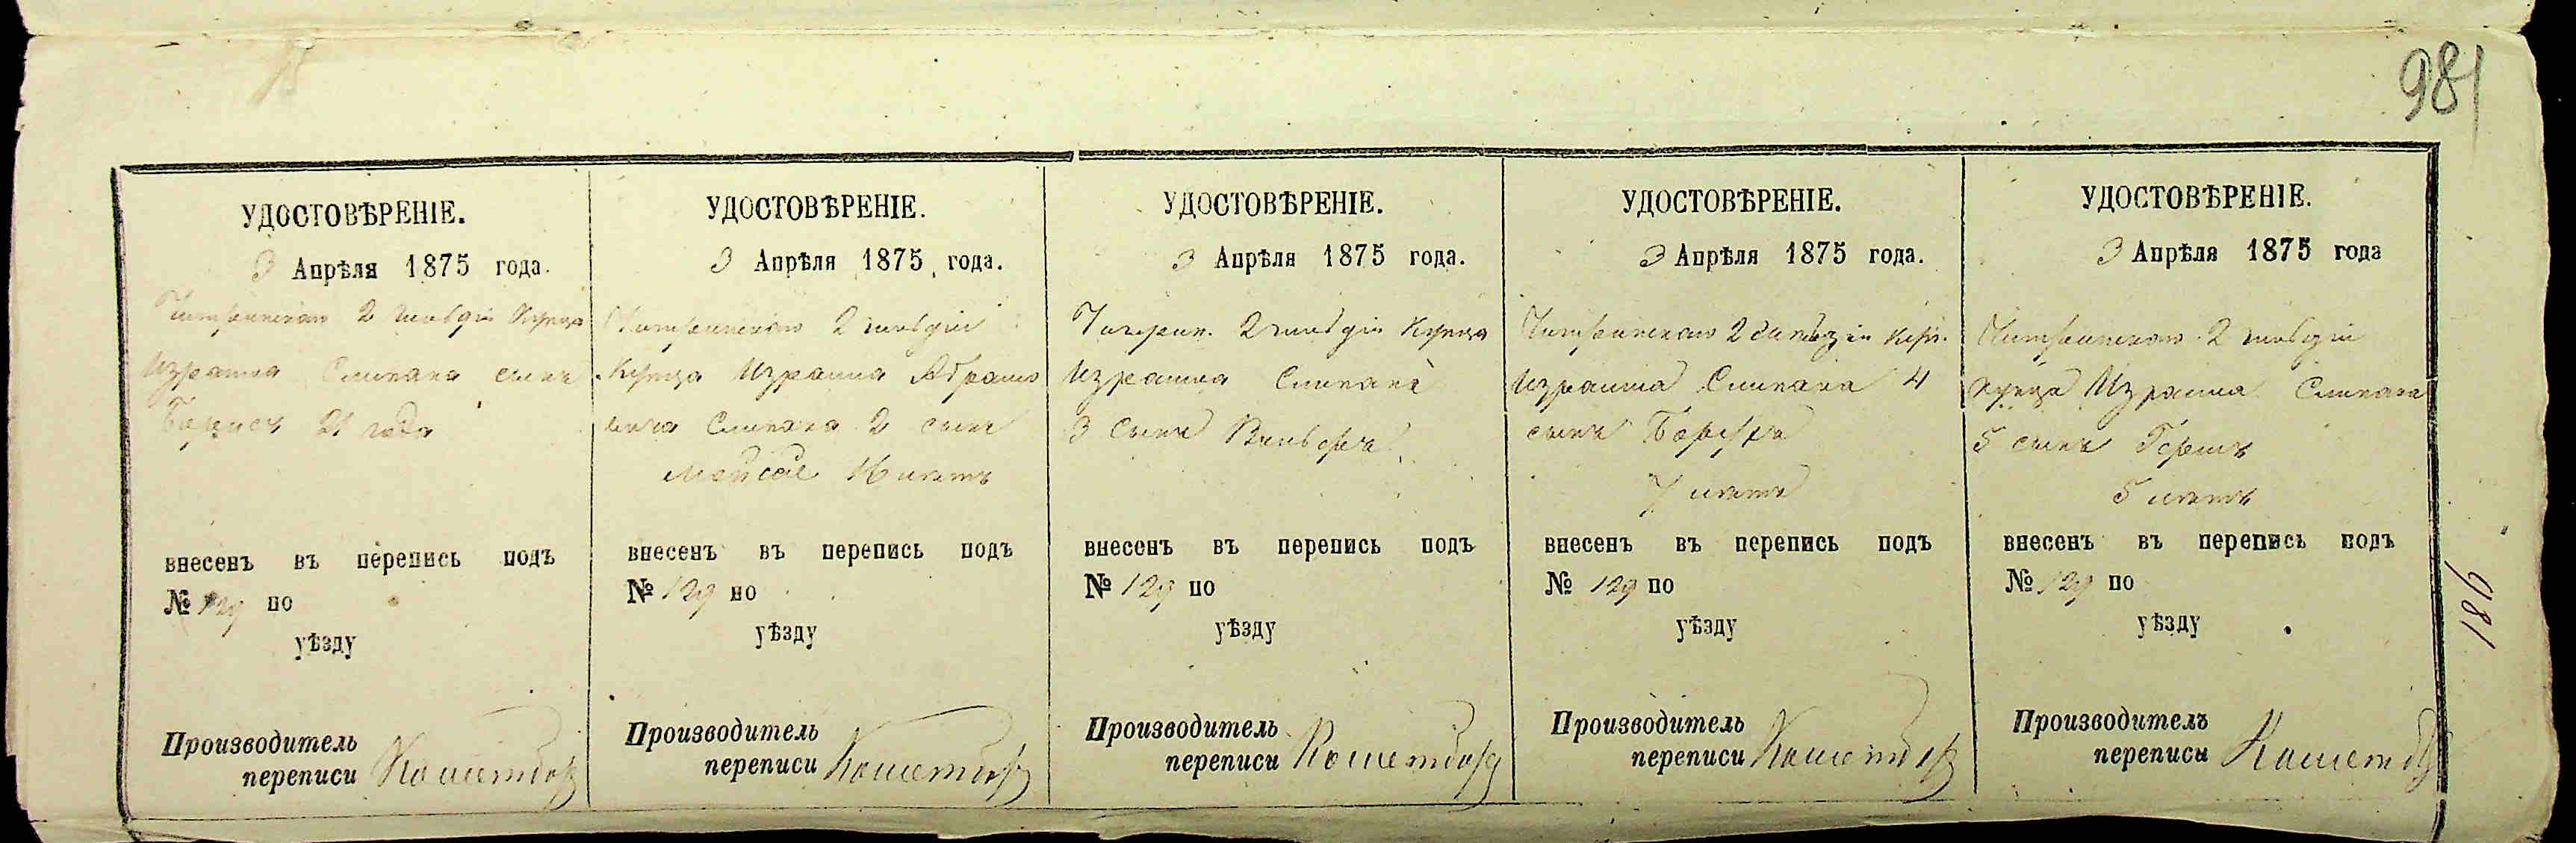 981
УДОСТОВѢРЕНІЕ.
3 Апрѣля 1875 года.
2 гильдіи Купца
Израиля Слипака сынъ
21 года
внесенъ въ перепись подъ
№ 129 по
уѣзду
Производитель
переписи
УДОСТОВѢРЕНІЕ.
3 Апрѣля 1875 года.
2 гильдіи
Купца Израиля Абрамо
вича Слипака 2 сынъ
Мойсей 16 летъ
внесенъ въ перепись подъ
№ 129 по
уѣзду
Производитель
переписи
УДОСТОВѢРЕНІЕ.
3 Апрѣля 1875 года.
2 гильдіи Купца
Израиля Слипака
3 сынъ
внесенъ въ перепись подъ
№ 129 по
уѣзду
Производитель
переписи
УДОСТОВѢРЕНІЕ.
3 Апрѣля 1875 года.
2 гильдіи Куп.
Израиля Слипака 4
сынъ
7 летъ
внесенъ въ перепись подъ
№ 129 по
уѣзду
Производитель
переписи
УДОСТОВѢРЕНІЕ.
3 Апрѣля 1875 года
2 гильдіи
Купца Израиля Слипака
5 сынъ Гершъ
5 летъ
внесенъ въ перепись подъ
№ 129 по
уѣзду
Производитель
переписи
981